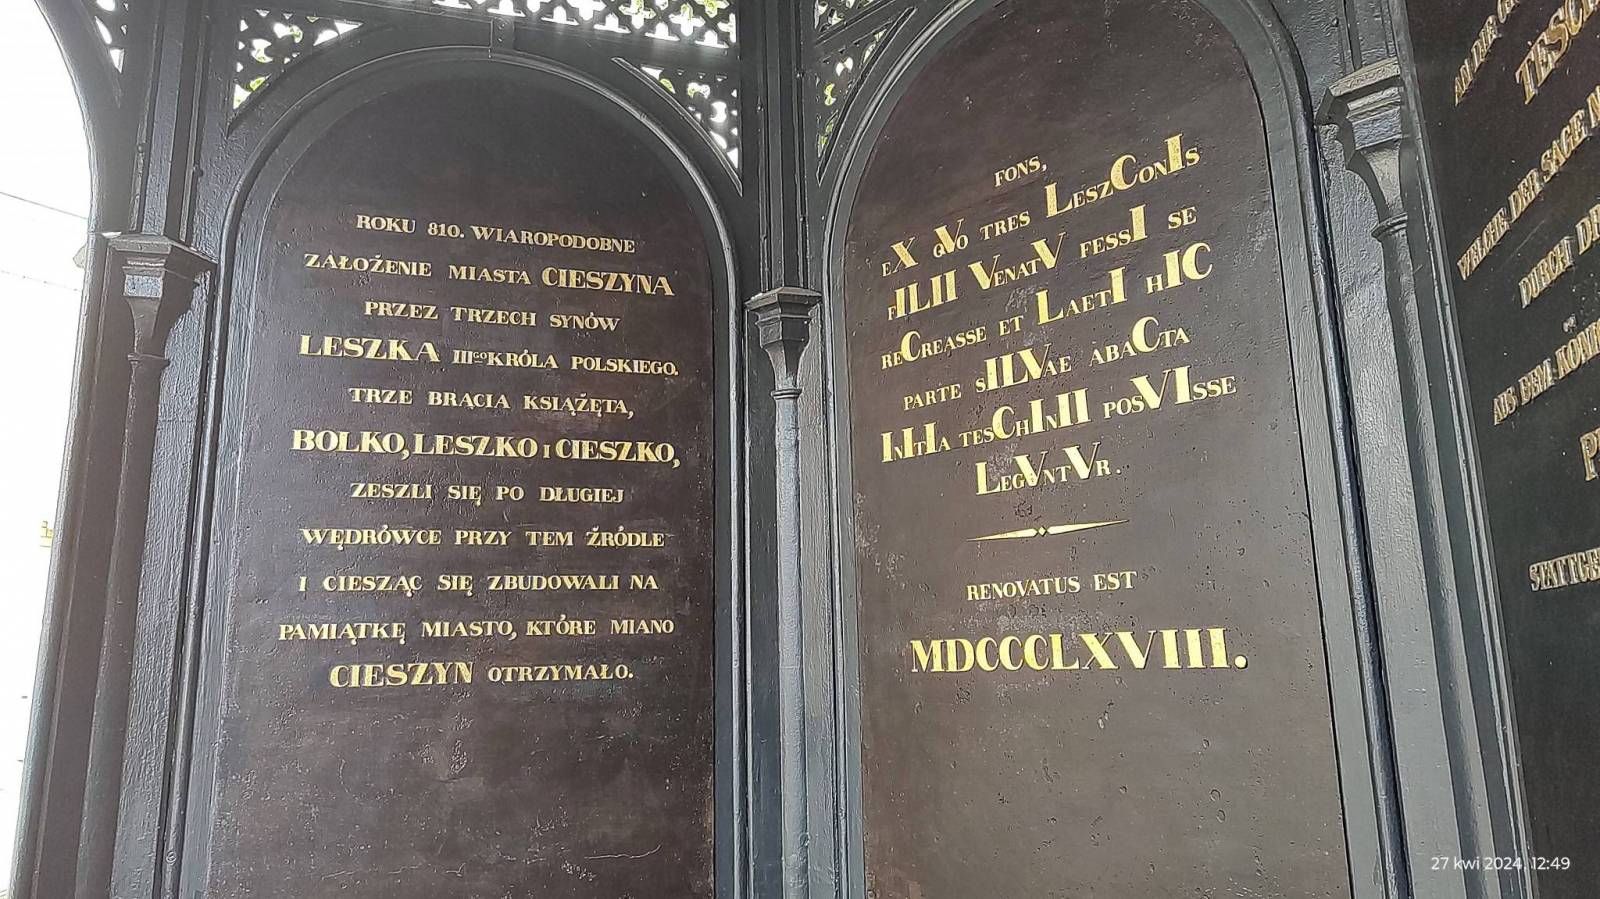 ROKU 810. WIAROPODOBNE
ZAŁOŻENIE MIASTA CIESZYNA
PRZEZ TRZECH SYNÓW
LESZKA IIIgo KRÓLA POLSKIEGO.
TRZE BRACIA KSIĄŻĘTA,
BOLKO, LESZKO I CIESZKO,
ZESZLI SIĘ PO DŁUGIEJ
WĘDRÓWCE PRZY TEM ŹRÓDLE
I CIESZĄC SIĘ ZBUDOWALI NA
PAMIĄTKĘ MIASTO, KTÓRE MIANO
CIESZYN OTRZYMAŁO.
FONS,
eX qVo tres LeszConIs
fILII VenatV fessI se
reCreasse et LaetI hIC
parte sILVae abaCta
InItIa tesChInII posVIsse
LegVntVr.
RENOVATUS EST
MDCCCLXVIII.
TESCH
WELCHE DER SAGE N
DURCH DR
AUS DEM KÖNI
STATTGE
27 kwi 2024, 12:49